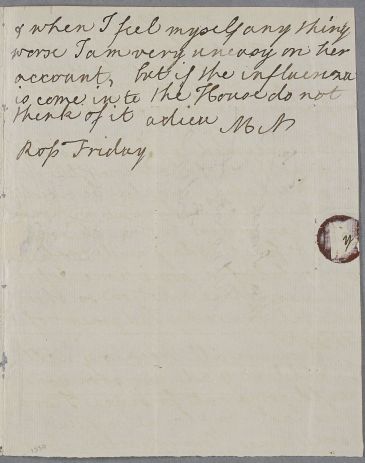 & when I feel myself any thing
worse I am very uneasy on her
account, but if the influenza
is come in to the House do not
think of it adieu MN
Roſs Friday